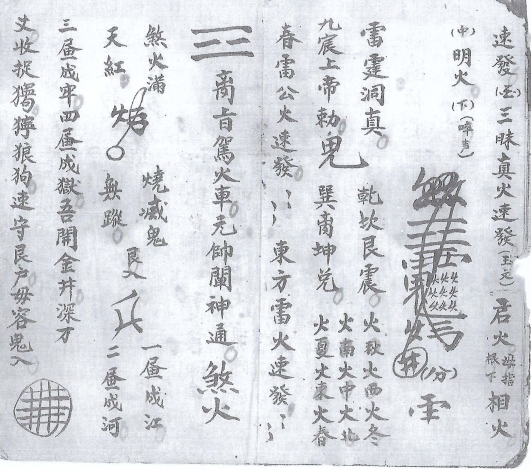 速發三昧真火速發君火 母指根下 相火
(中)明火(下)
(分)
雷霆洞真 乾坎艮震 火秋火西火冬
火南火中火北
九宸上帝勅 鬼 巽离坤兑 火夏火東火春
春雷公火速發 東方雷火速發
駕火車元帥開神通 煞火
煞火滿 燒滅鬼 一昼成江
天紅 無蹤 二昼成河
三昼成牢四昼成獄吾開金井深万
丈收捉獨獰狼狗速守艮户毋容鬼入